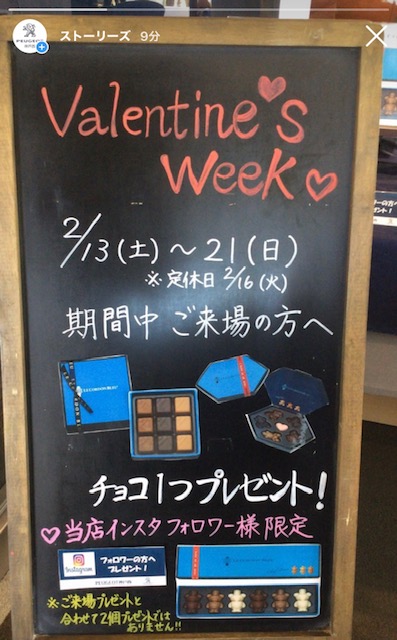 ストーリーズ 9分
PEUGEOT
Valentine's
Week
2/13(土)～21(日)
※定休日 2/16(火)
期間中 ご来場の方へ
LE CORDON BLEU
チョコ1つプレゼント!
当店インスタ フォロワー様 限定
Instagram
フォロワーの方へ
プレゼント!
※ご来場プレゼントと
合わせて2個プレゼントでは
ありません!!